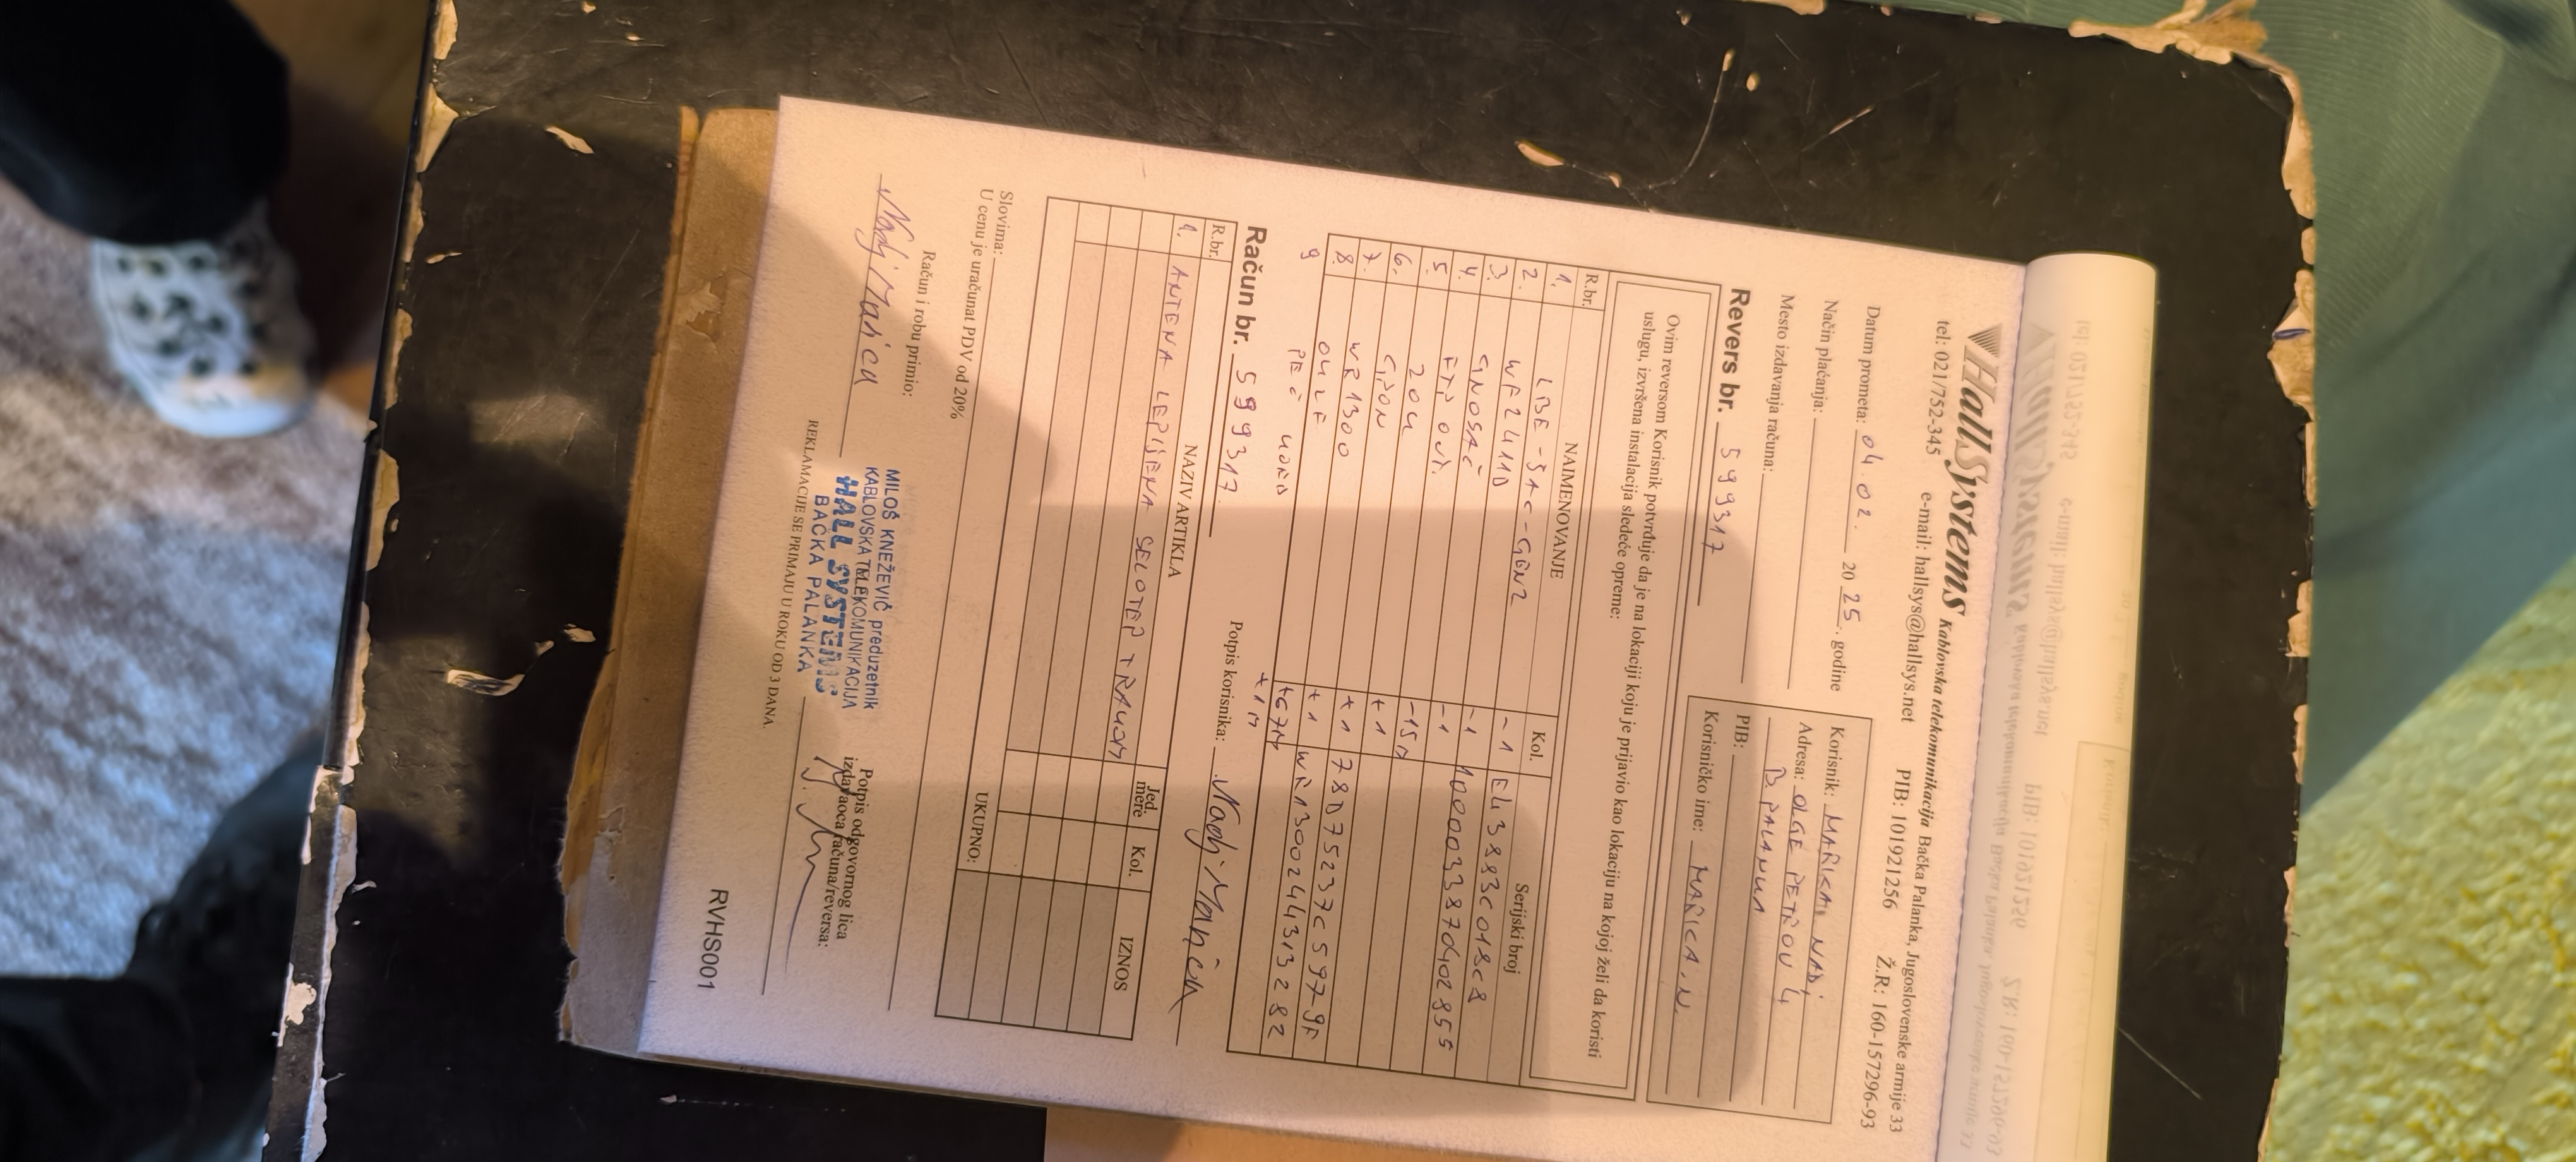 HallSystems Kablovska telekomunikacija Bačka Palanka, Jugoslovenske armije 33
tel: 021/752-345 e-mail: hallsys@hallsys.net PIB: 101921256 Ž.R: 160-157296-93
Datum prometa: 04.02. 20 25. godine
Način plaćanja:
Mesto izdavanja računa:
Korisnik: MARICA NAĐ
Adresa: OLGE PETROV 4
B. PALANKA
PIB:
Korisničko ime: MARICA.N.
Revers br. 599317
Ovim reversom Korisnik potvrđuje da je na lokaciji koju je prijavio kao lokaciju na kojoj želi da koristi
uslugu, izvršena instalacija sledeće opreme:
R.br. NAIMENOVANJE Kol. Serijski broj
1. LBE-5AC-GEN2 -1 E43883C018C8
2. WF2411D -1 1000033870402855
3. GNOSAČ -1
4. FTP OUT. -15M
5. 20U +1
6. GPON +1 78D75237C597-9F
7. WR1300 +1 WR13002441313282
8. 04LF +67M
9 PEČ +1M
Račun br. 599317. Potpis korisnika: Nađ Marica
R.br. NAZIV ARTIKLA Jed. mere Kol. IZNOS
1. ANTENA LEPIJENA SELOTEP TRAKOM
UKUPNO:
Slovima:
U cenu je uračunat PDV od 20%
Račun i robu primio:
Nađ Marica
MILOŠ KNEŽEVIĆ preduzetnik
KABLOVSKA TELEKOMUNIKACIJA
HALL SYSTEMS
BAČKA PALANKA
Potpis odgovornog lica
izdavaoca računa/reversa:
REKLAMACIJE SE PRIMAJU U ROKU OD 3 DANA.
RVHS001